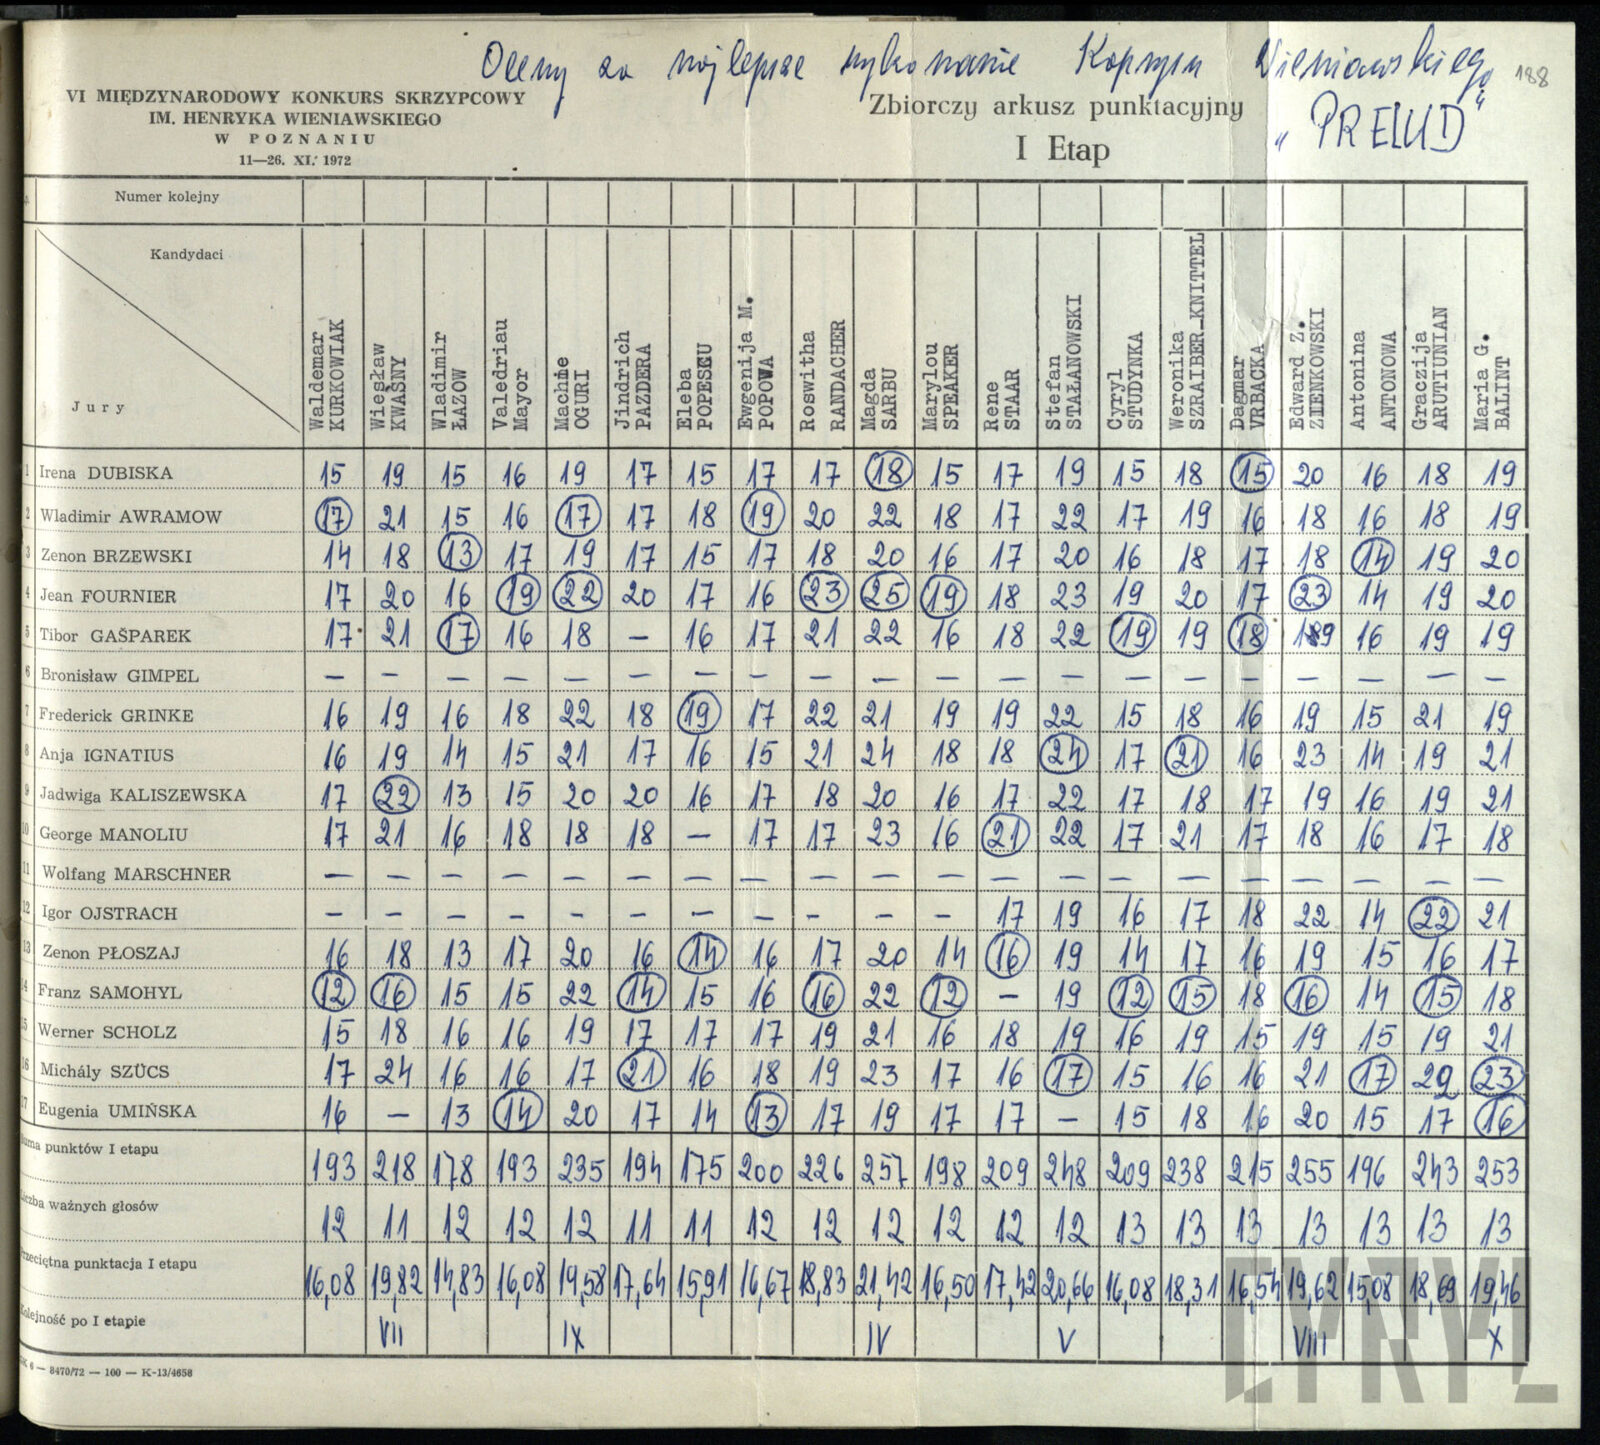 Oceny za najlepsze wykonanie Kaprysu Wieniawskiego
188
„PRELUD"
VI MIĘDZYNARODOWY KONKURS SKRZYPCOWY
IM. HENRYKA WIENIAWSKIEGO
W POZNANIU
11—26. XI. 1972
Zbiorczy arkusz punktacyjny
I Etap
Numer kolejny
Kandydaci
Jury
Waldemar KURKOWIAK
Wiesław KWAŚNY
Wladimir ŁAZOW
Valedriau Mayor
Machie OGURI
Jindrich PAZDERA
Eleba POPESCU
Ewgenija M. POPOWA
Roswitha RANDACHER
Magda SARBU
Marylou SPEAKER
Rene STAAR
Stefan STAŁANOWSKI
Cyryl STUDYNKA
Weronika SZRAIBER-KNITTEL
Dagmar VRBACKA
Edward Z. ZIENKOWSKI
Antonina ANTONOWA
Graczija ARUTIUNIAN
Maria G. BALINT
1 Irena DUBISKA 15 19 15 16 19 17 15 17 17 18 15 17 19 15 18 15 20 16 18 19
2 Wladimir AWRAMOW 17 21 15 16 17 17 18 19 20 22 18 17 22 17 19 16 18 16 18 19
3 Zenon BRZEWSKI 14 18 13 17 19 17 15 17 18 20 16 17 20 16 18 17 18 14 19 20
4 Jean FOURNIER 17 20 16 19 22 20 17 16 23 25 19 18 23 19 20 17 23 14 19 20
5 Tibor GAŠPAREK 17 21 17 16 18 — 16 17 21 22 16 18 22 19 19 18 19 16 19 19
6 Bronisław GIMPEL — — — — — — — — — — — — — — — — — — — —
7 Frederick GRINKE 16 19 16 18 22 18 19 17 22 21 19 19 22 15 18 16 19 15 21 19
8 Anja IGNATIUS 16 19 14 15 21 17 16 15 21 24 18 18 24 17 21 16 23 14 19 21
9 Jadwiga KALISZEWSKA 17 22 13 15 20 20 16 17 18 20 16 17 22 17 18 17 19 16 19 21
10 George MANOLIU 17 21 16 18 18 18 — 17 17 23 16 21 22 17 21 17 18 16 17 18
11 Wolfang MARSCHNER — — — — — — — — — — — — — — — — — — — —
12 Igor OJSTRACH — — — — — — — — — — — 17 19 16 17 18 22 14 22 21
13 Zenon PŁOSZAJ 16 18 13 17 20 16 14 16 17 20 14 16 19 14 17 16 19 15 16 17
14 Franz SAMOHYL 12 16 15 15 22 14 15 16 16 22 12 — 19 12 15 18 16 14 15 18
15 Werner SCHOLZ 15 18 16 16 19 17 17 17 19 21 16 18 19 16 19 15 19 15 19 21
16 Michály SZÜCS 17 24 16 16 17 21 16 18 19 23 17 16 17 15 16 16 21 17 20 23
17 Eugenia UMIŃSKA 16 — 13 14 20 17 14 13 17 19 17 17 — 15 18 16 20 15 17 16
Suma punktów I etapu 193 218 178 193 235 194 175 200 226 257 198 209 248 209 238 215 255 196 243 253
Liczba ważnych głosów 12 11 12 12 12 11 11 12 12 12 12 12 12 13 13 13 13 13 13 13
Przeciętna punktacja I etapu 16,08 19,82 14,83 16,08 19,58 17,64 15,91 16,67 18,83 21,42 16,50 17,42 20,66 16,08 18,31 16,54 19,62 15,08 18,69 19,46
Kolejność po I etapie VII IX IV V VIII X
6 — 8470/72 — 100 — K-13/4658
CYRYL